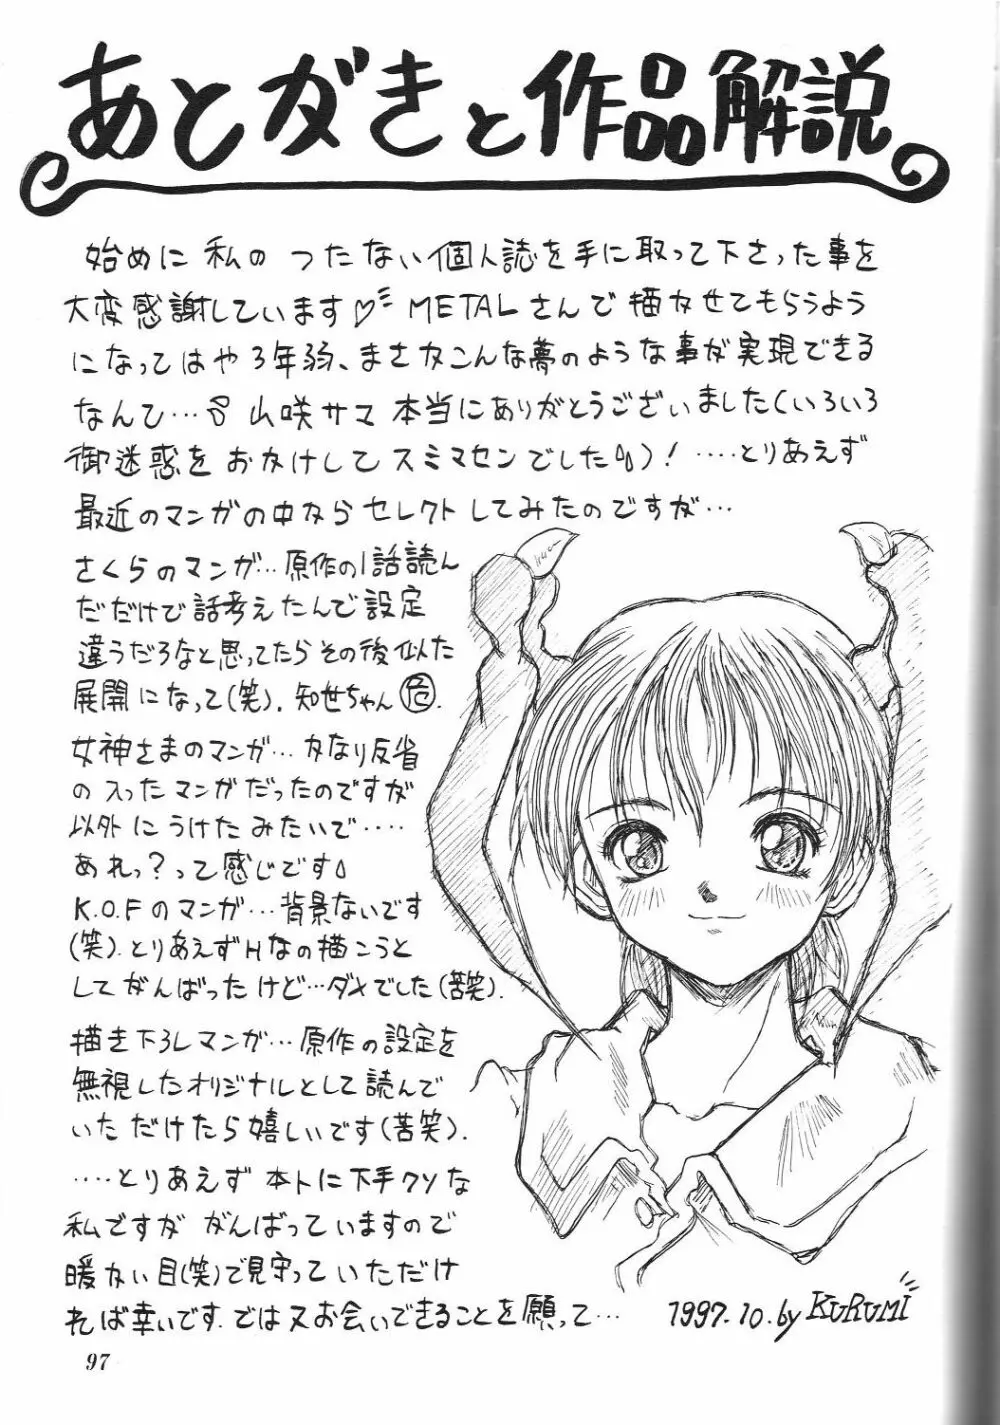 あとがきと作品解説
始めに私のつたない個人誌を手に取って下さった事を
大変感謝しています♡ METALさんで描かせてもらうよう
になってはや3年弱、まさかこんな夢のような事が実現できる
なんて… 山咲サマ本当にありがとうございました(いろいろ
御迷惑をおかけしてスミマセンでした)! ‥‥とりあえず
最近のマンガの中からセレクトしてみたのですが…
さくらのマンガ…原作の1話読ん
だだけで話考えたんで設定
違うだろなと思ってたらその後似た
展開になって(笑). 知世ちゃん㊙.
女神さまのマンガ…かなり反省
の入ったマンガだったのですが
以外にうけたみたいで‥‥
あれっ?って感じです
K.O.Fのマンガ…背景ないです
(笑). とりあえずHなの描こうと
してがんばったけど…ダメでした(苦笑).
描き下ろしマンガ…原作の設定を
無視したオリジナルとして読んで
いただけたら嬉しいです(苦笑).
‥‥とりあえず本トに下手クソな
私ですががんばっていますので
暖かい目(笑)で見守っていただけ
れば幸いです. では又お会いできることを願って…
1997.10.by KURUMI
97